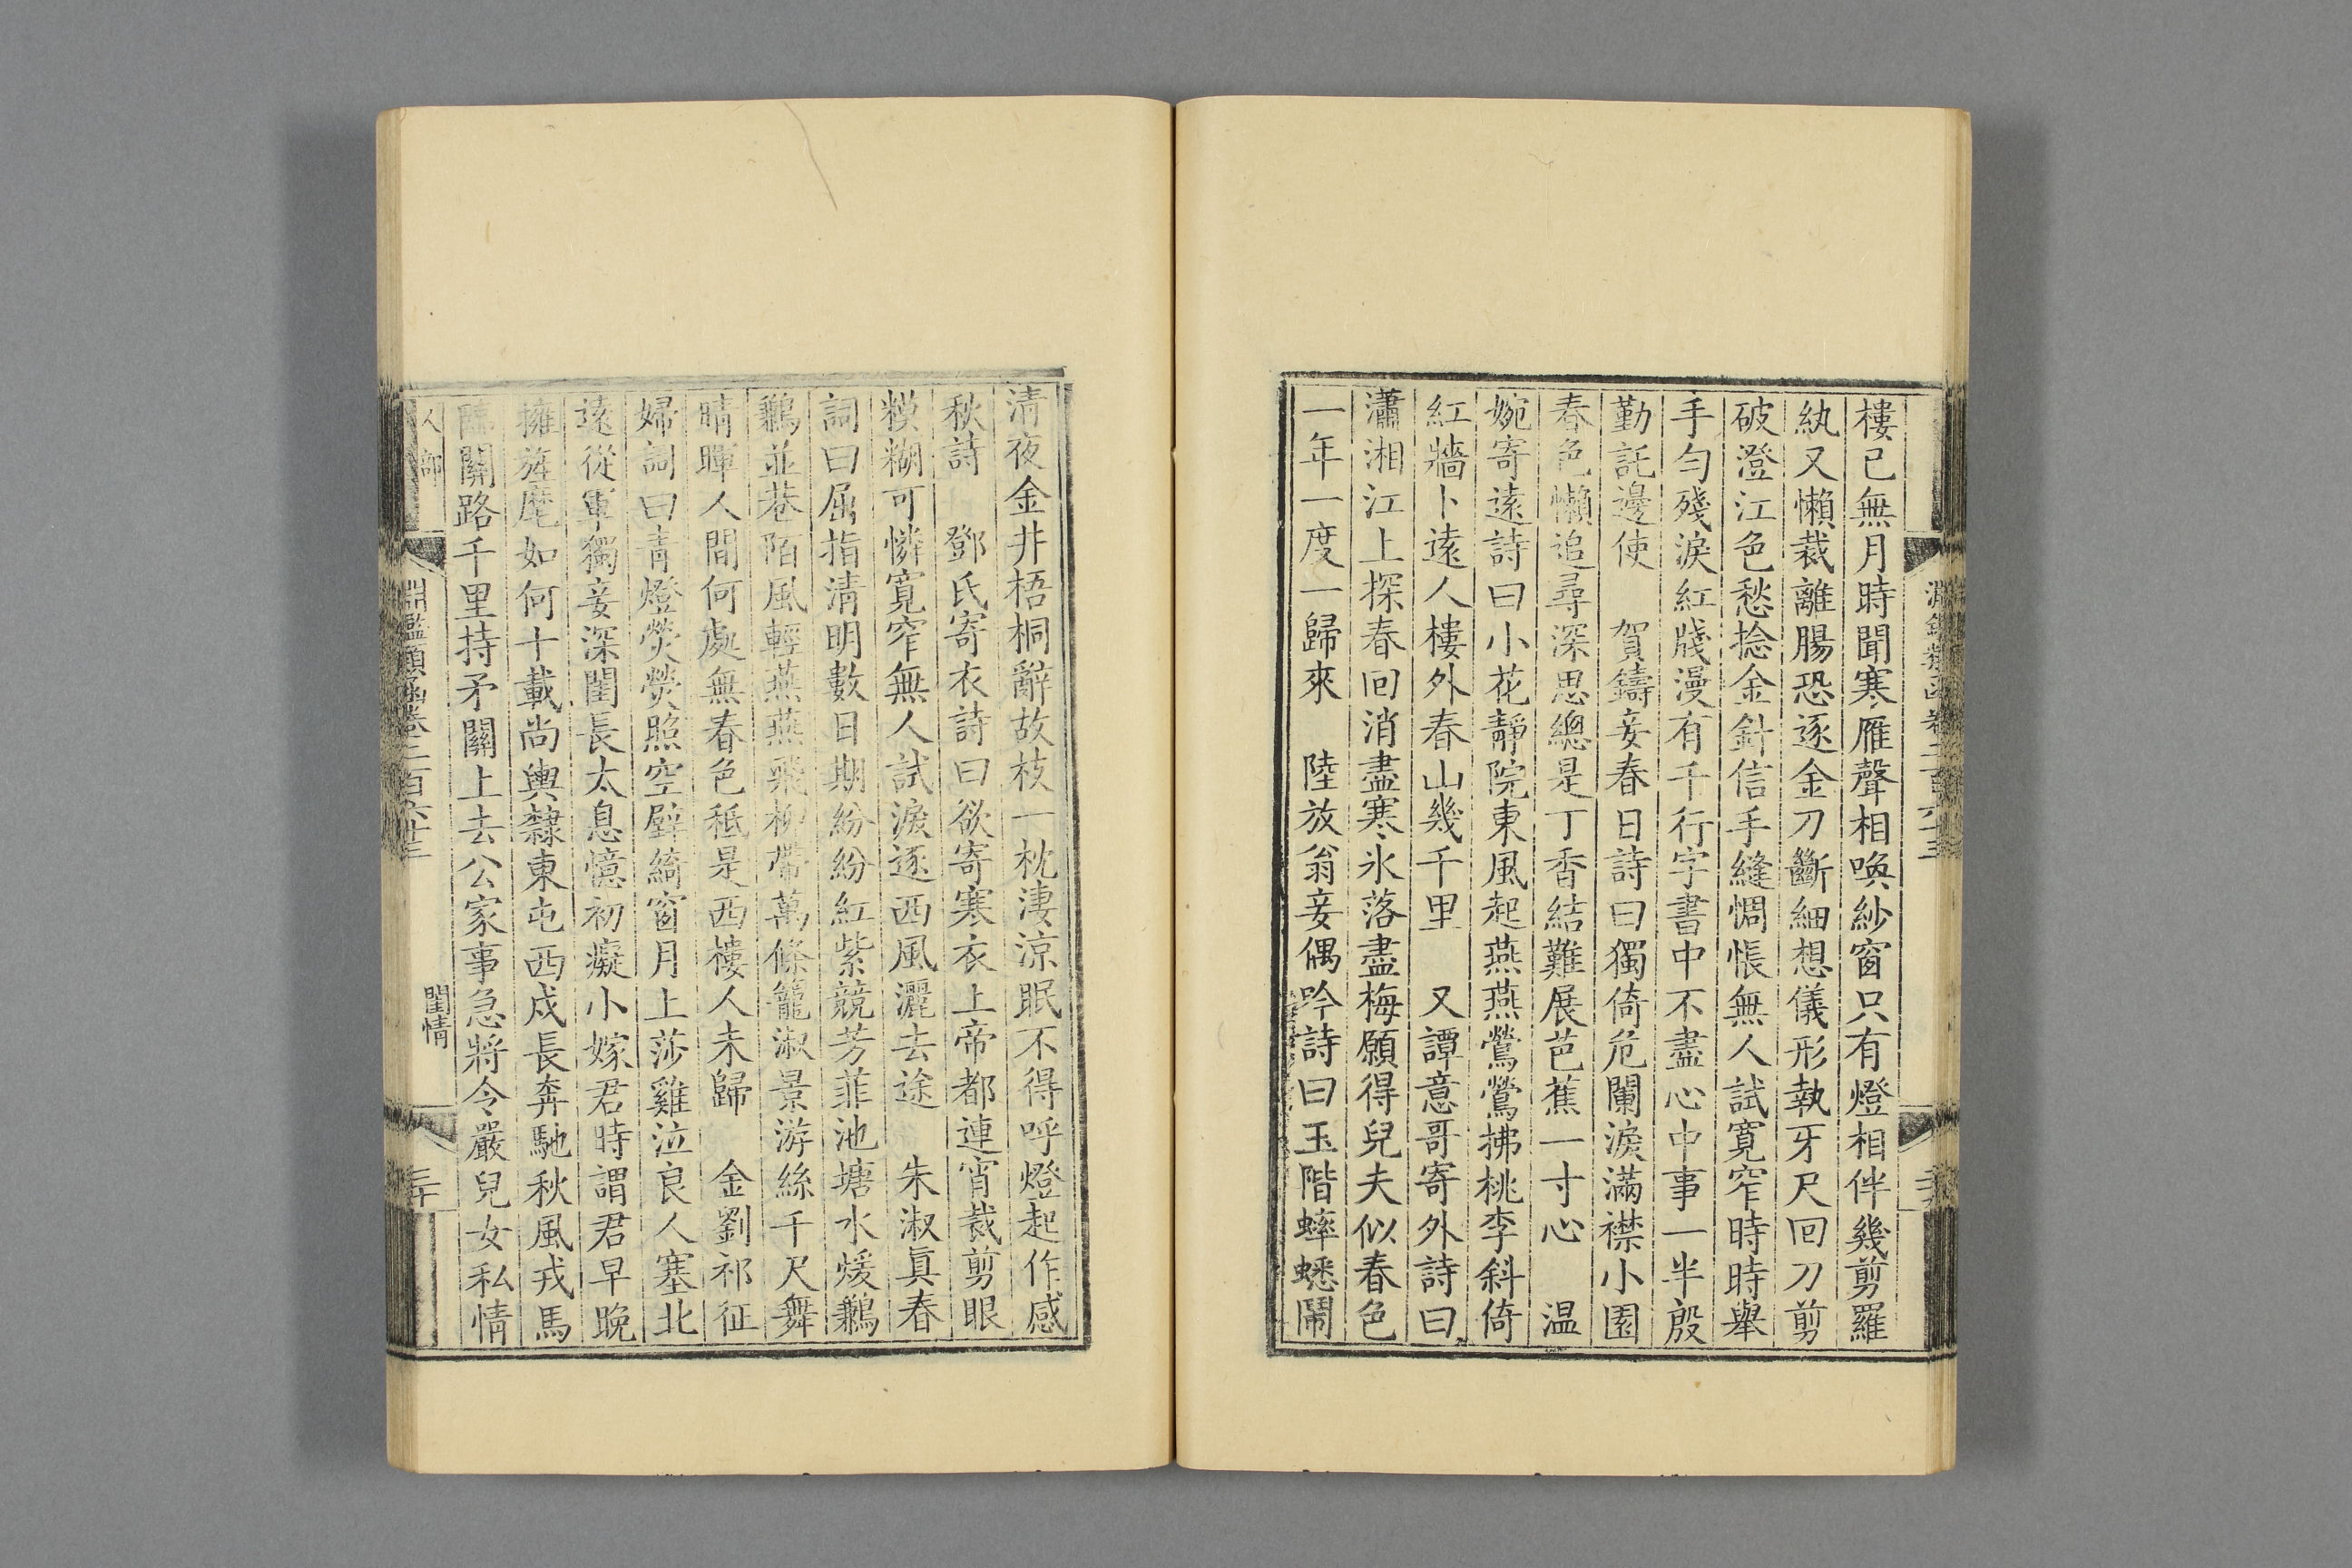 樓已無月時聞寒雁聲相喚紗窗只有燈相伴幾剪羅
紈又懶裁離腸恐逐金刀斷細想儀形執牙尺回刀剪
破澄江色愁捻金針信手縫惆悵無人試寬窄時時舉
手勻殘淚紅牋漫有千行字書中不盡心中事一半殷
勤託邊使　賀鑄妾春日詩曰獨倚危闌淚滿襟小園
春色懶追尋深思總是丁香結難展芭蕉一寸心　温
婉寄遠詩曰小花靜院東風起燕燕鶯鶯拂桃李斜倚
紅牆卜遠人樓外春山幾千里　又譚意哥寄外詩曰
瀟湘江上探春回消盡寒氷落盡梅願得兒夫似春色
一年一度一歸來　陸放翁妾偶吟詩曰玉階蟀蟋鬧
清夜金井梧桐辭故枝一枕淒涼眠不得呼燈起作感
秋詩　鄧氏寄衣詩曰欲寄寒衣上帝都連宵裁剪眼
糢糊可憐寬窄無人試淚逐西風灑去途　朱淑眞春
詞曰屈指清明數日期紛紛紅紫競芳菲池塘水煖鶼
鶼並巷陌風輕燕燕飛柳帶萬條籠淑景游絲千尺舞
晴暉人間何處無春色秪是西樓人未歸　金劉祁征
婦詞曰青燈熒熒照空壁綺窗月上莎雞泣良人塞北
遠從軍獨妾深閨長太息憶初癡小嫁君時謂君早晚
擁旌麾如何十載尚輿隸東屯西戍長奔馳秋風戎馬
關路千里持矛關上去公家事急將令嚴兒女私情
人部
淵鑑類函卷二百六十三
閨情
三十